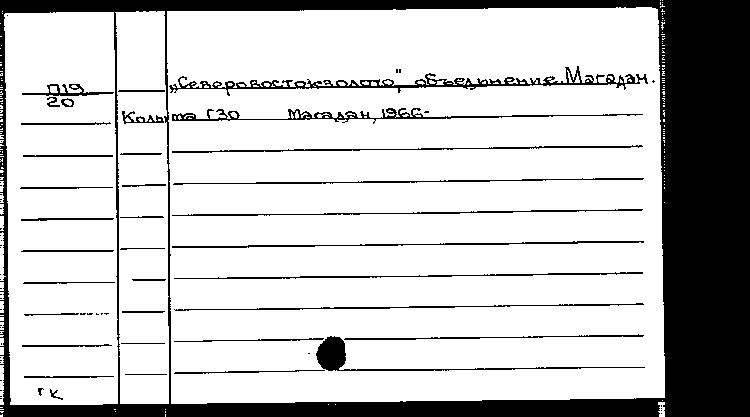 П19
20
„Северовостокзолото", объединение. Магадан.
Колыма Г30 Магадан, 1966-
ГК